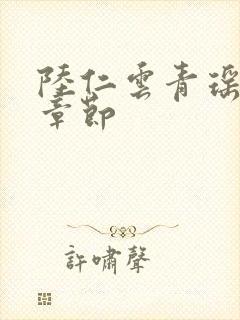 陸仁雲青瑤
章節
許嘯聲